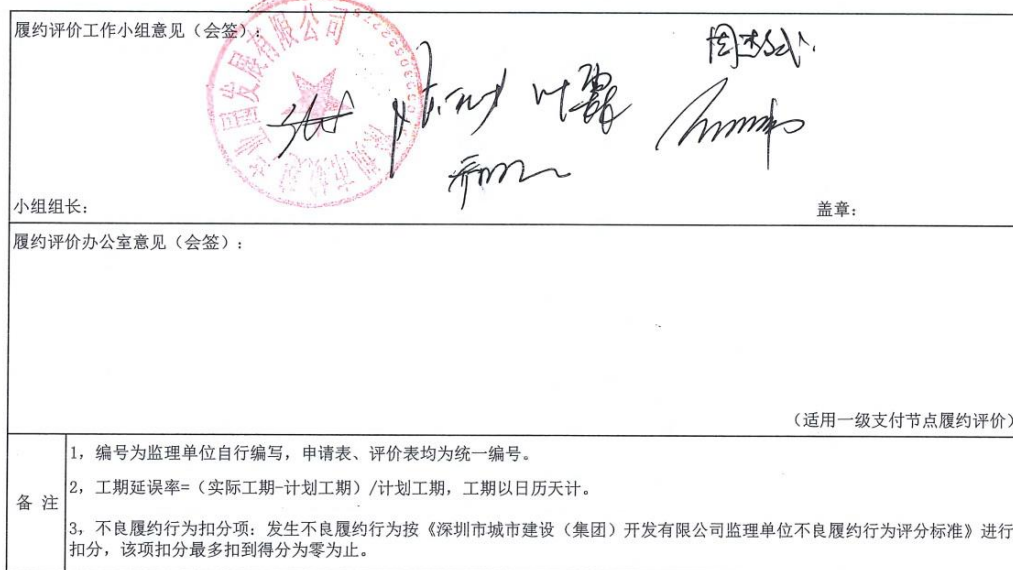 履约评价工作小组意见（会签）：
叶霖
小组组长：
盖章：
履约评价办公室意见（会签）：
（适用一级支付节点履约评价）
备 注
1，编号为监理单位自行编写，申请表、评价表均为统一编号。
2，工期延误率=（实际工期-计划工期）/计划工期，工期以日历天计。
3，不良履约行为扣分项：发生不良履约行为按《深圳市城市建设（集团）开发有限公司监理单位不良履约行为评分标准》进行
扣分，该项扣分最多扣到得分为零为止。